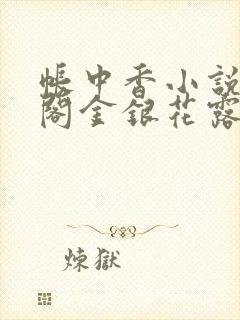 帳中香小說
閣金銀花露
煉獄